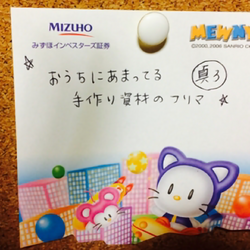 MIZUHO
みずほインベスターズ証券
MEWN
©2000,2006 SANRIO C
☆ おうちにあまってる
手作り資材のフリマ ☆
真3